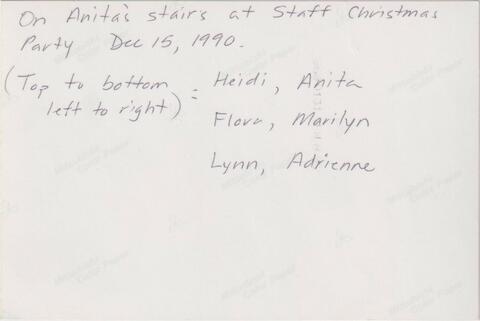 On Anita's stairs at Staff Christmas
Party Dec 15, 1990.
(Top to bottom
left to right) = Heidi, Anita
Flora, Marilyn
Lynn, Adrienne